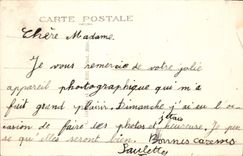 CARTE POSTALE
Chère Madame.
Je vous remercie de votre jolie
appareil photographique qui m'a
fait grand plaisir. Dimanche j'ai eu l'oc
casion de faire les photos j'étais
heureuse. Je pen
se qu'elles seront bien. Bonnes caresses
Paulette